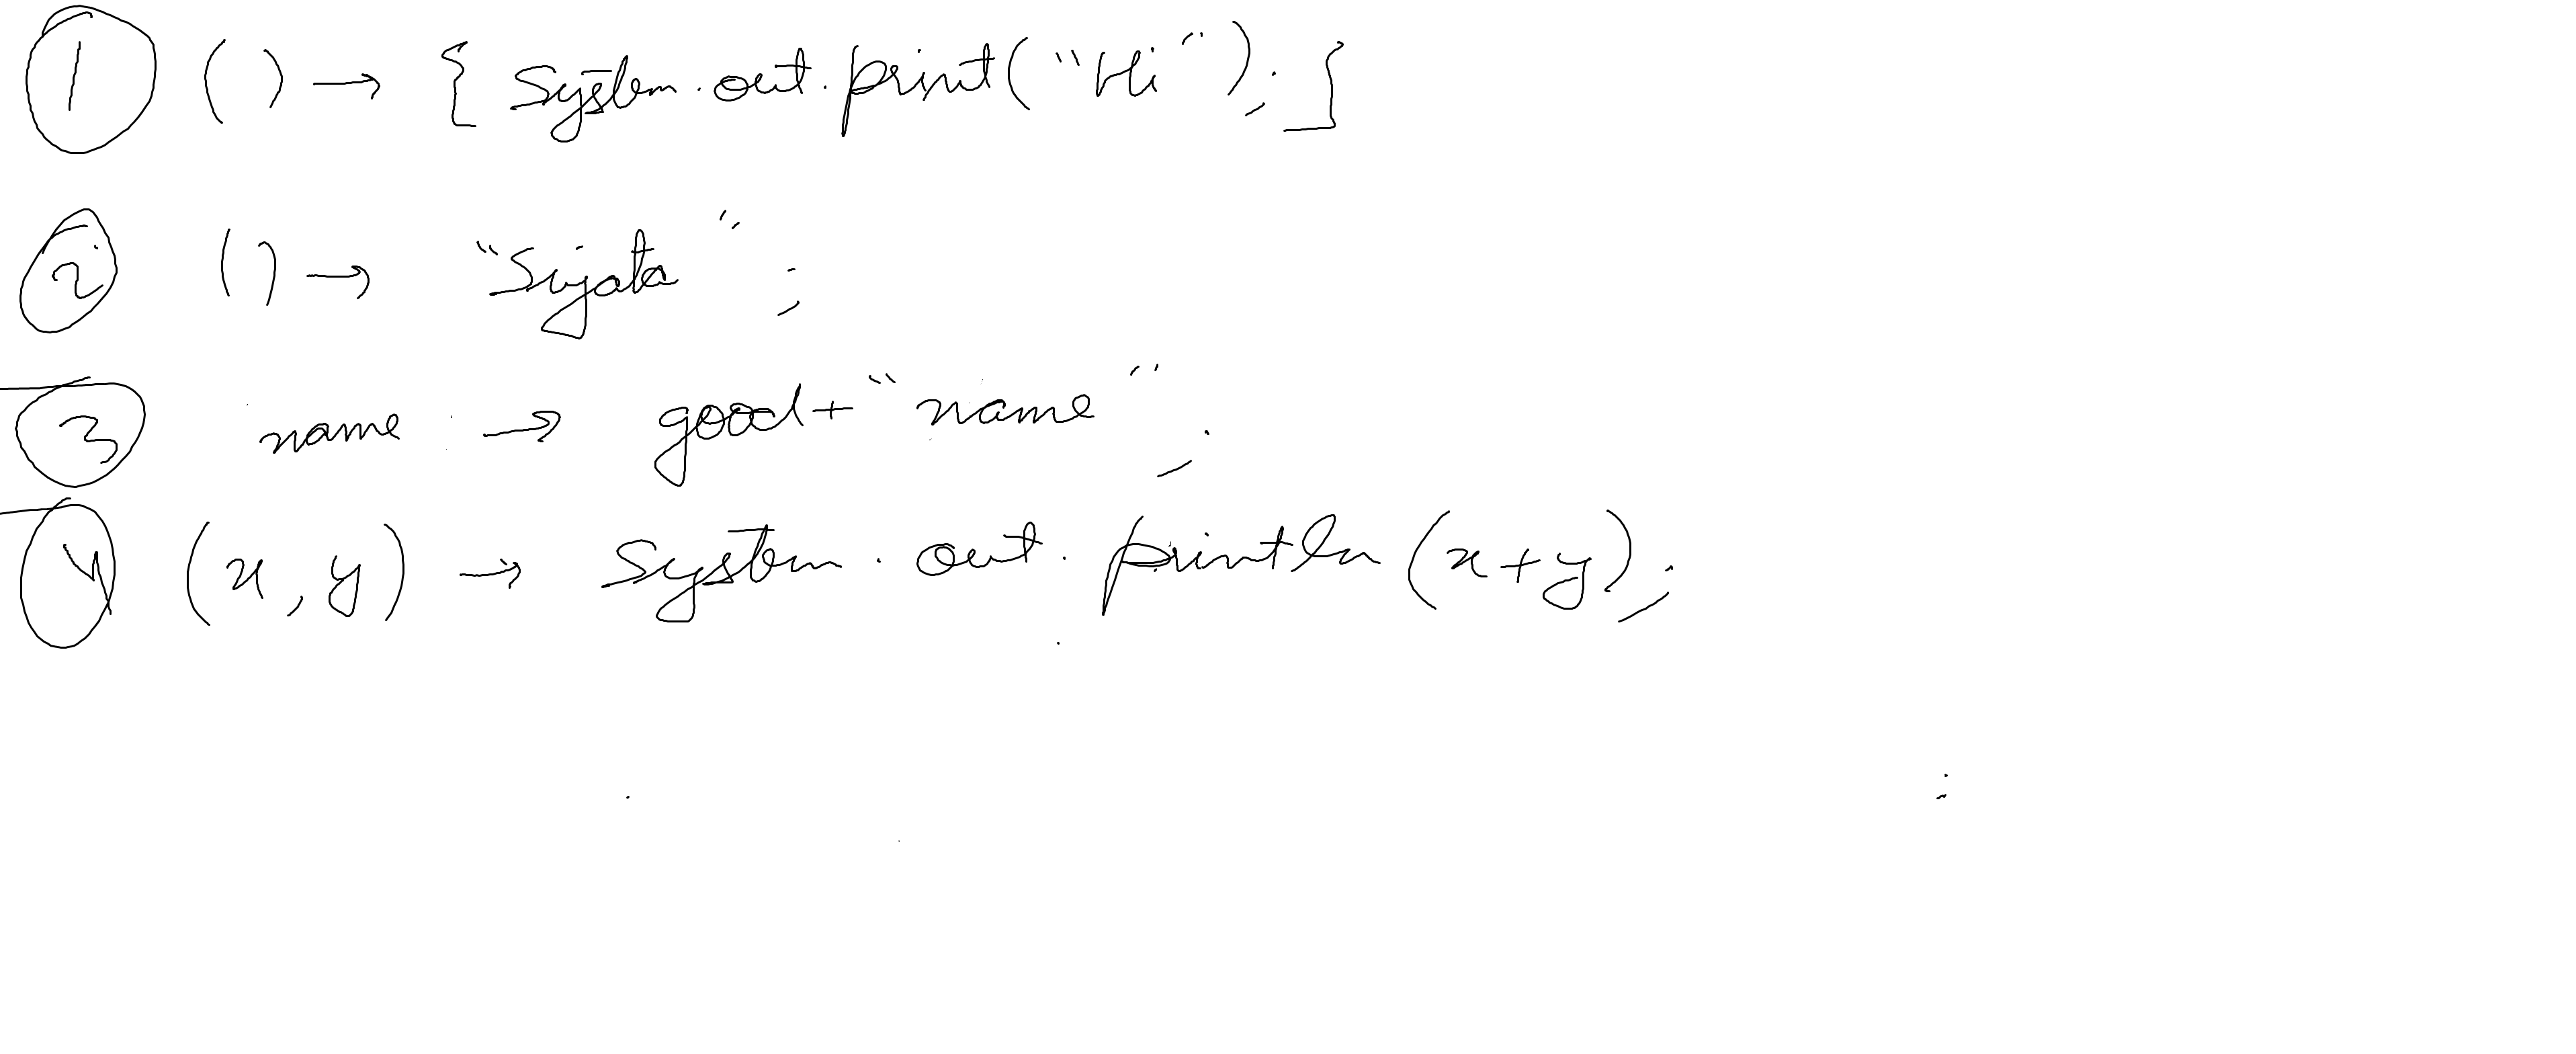 ① () → { System.out.print("Hi"); }
② () → "Sujata";
③ name → good+"name";
④ (x,y) → System.out.println(x+y);